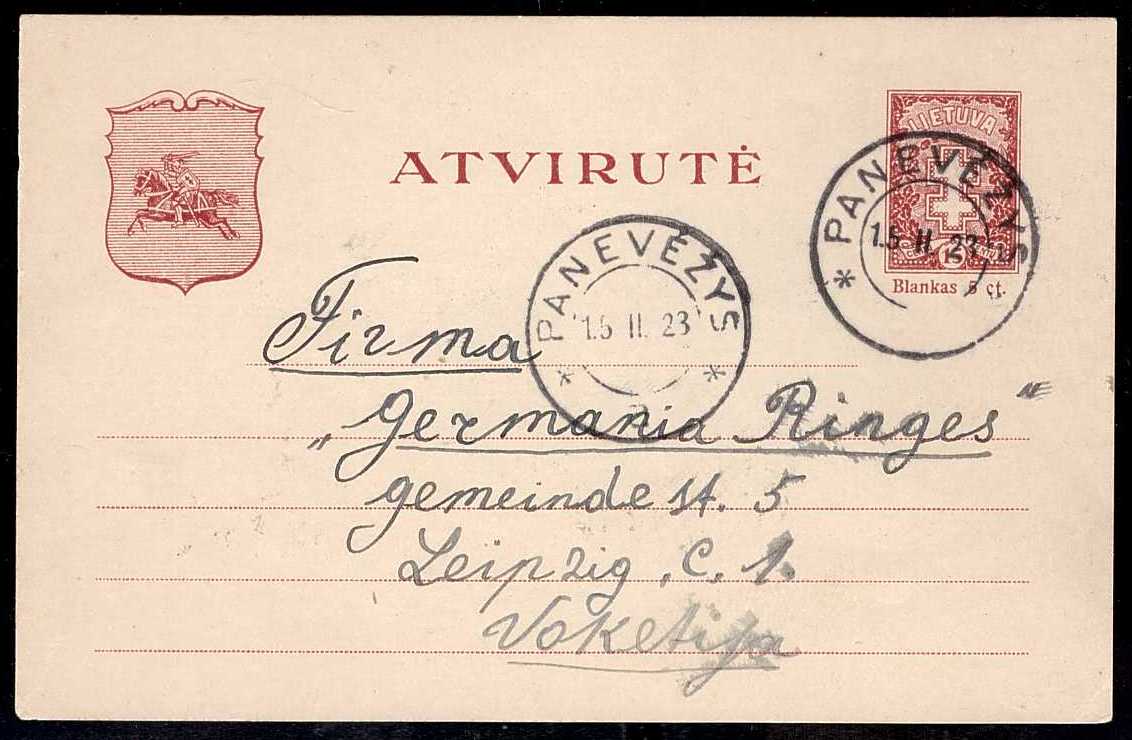 ATVIRUTĖ
LIETUVA
Blankas 5 ct.
PANEVĖŽYS
15 II. 23
PANEVĖŽYS
15 II. 23
Firma
„Germania Ringes"
gemeinde st. 5
Leipzig, C. 1.
Voketija